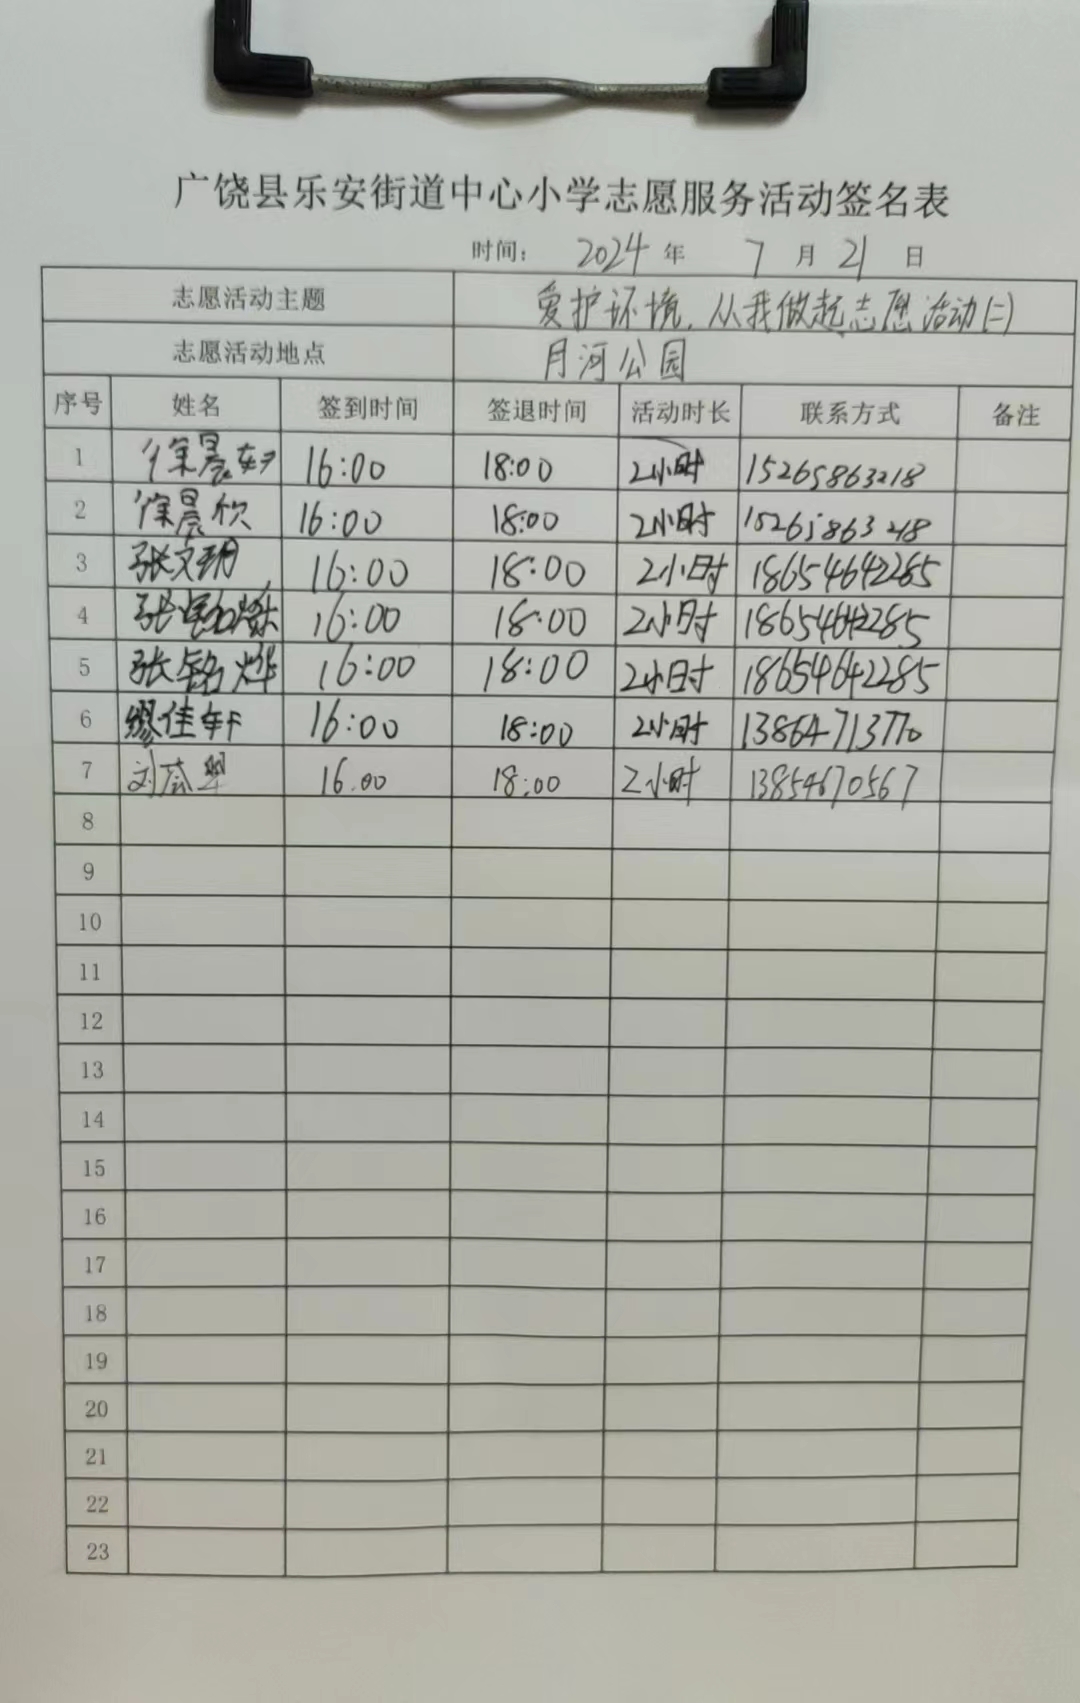 广饶县乐安街道中心小学志愿服务活动签名表
时间: 2024 年 7 月 21 日
志愿活动主题 爱护环境,从我做起志愿活动(二)
志愿活动地点 月河公园
序号 姓名 签到时间 签退时间 活动时长 联系方式 备注
1 徐晨 16:00 18:00 2小时 15265863218
2 徐晨欣 16:00 18:00 2小时 15265863218
3 张文玥 16:00 18:00 2小时 18654642285
4 张铭烁 16:00 18:00 2小时 18654642285
5 张铭烨 16:00 18:00 2小时 18654642285
6 缪佳轩 16:00 18:00 2小时 13864713770
7 刘 16:00 18:00 2小时 13854670567
8
9
10
11
12
13
14
15
16
17
18
19
20
21
22
23